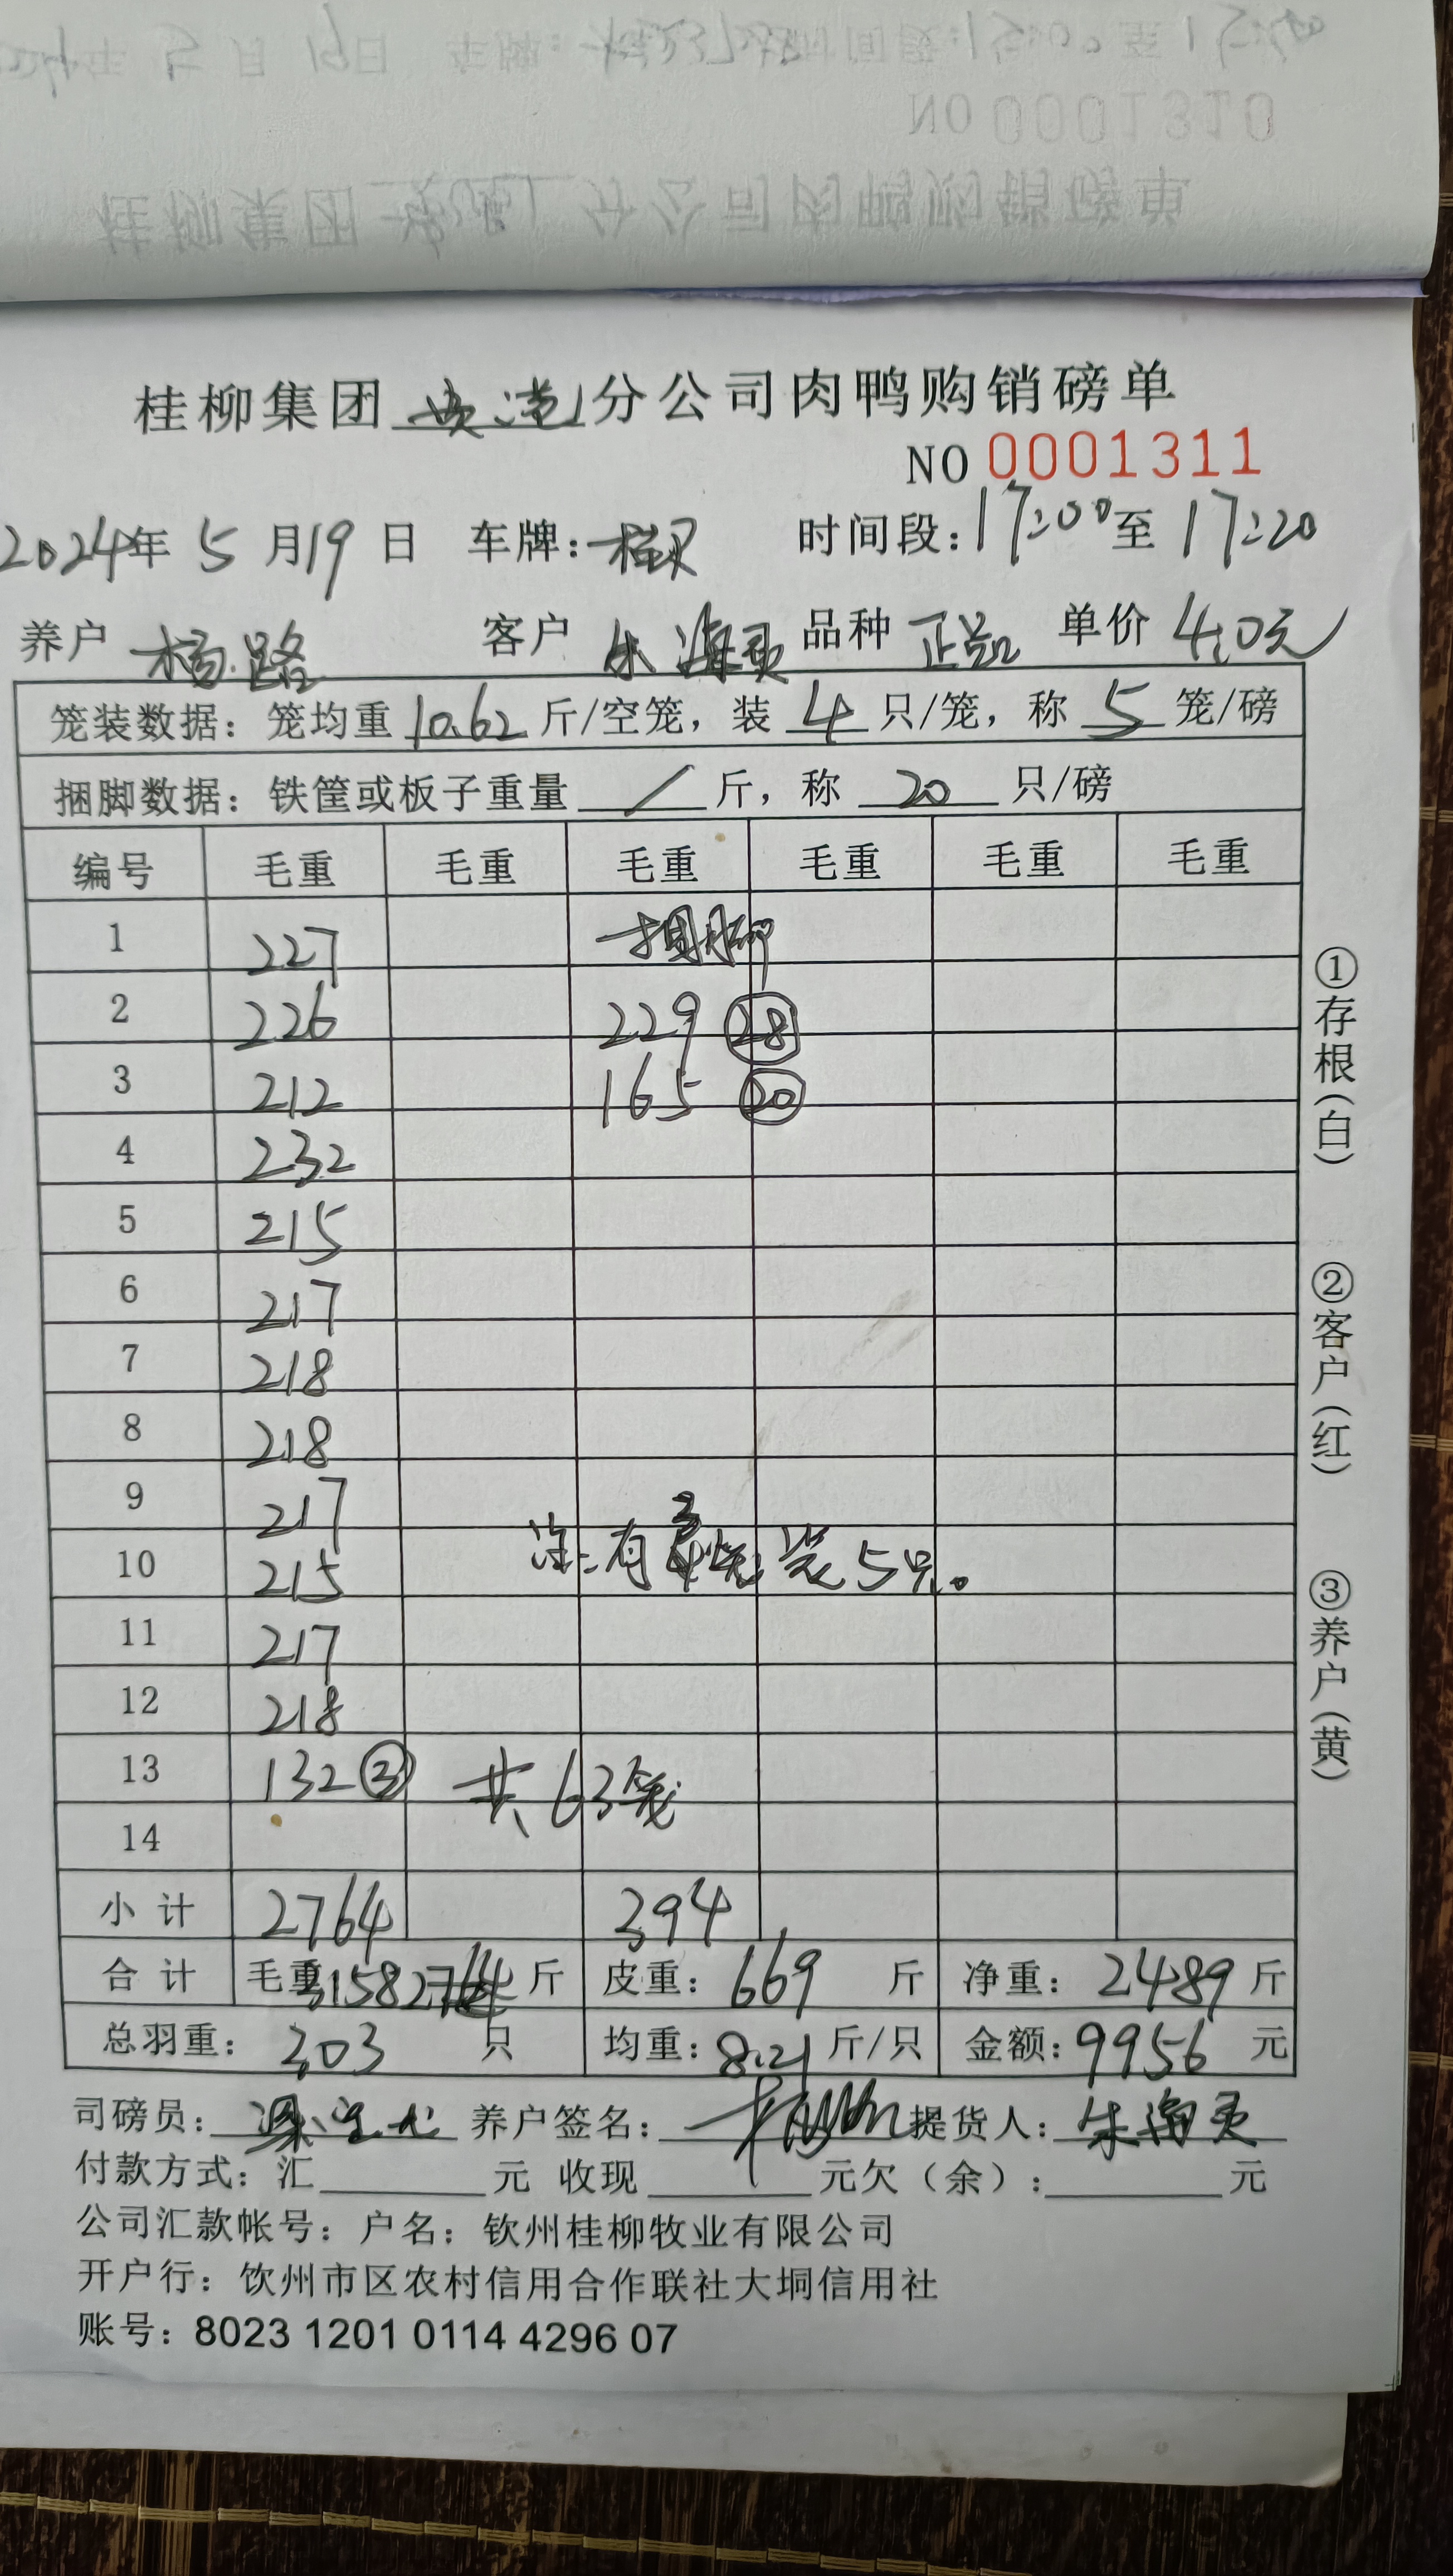 NO 0001310
桂柳集团 分公司肉鸭购销磅单
NO 0001311
2024年 5 月 19 日 车牌: 时间段: 17:00 至 17:20
养户 杨路 客户 朱海灵 品种 单价 4.0元
笼装数据: 笼均重 10.62 斤/空笼, 装 4 只/笼, 称 5 笼/磅
捆脚数据: 铁筐或板子重量 / 斤, 称 20 只/磅
编号 毛重 毛重 毛重 毛重 毛重 毛重
1 227 捆脚
2 226 229 28
3 212 165 20
4 232
5 215
6 217
7 218
8 218
9 217
10 215 注:有3笼装5只。
11 217
12 218
13 132 3 共63笼
14
小计 2764 394
合计 毛重 3158 斤 皮重: 669 斤 净重: 2489 斤
总羽重: 303 只 均重: 8.21 斤/只 金额: 9956 元
司磅员: 养户签名: 提货人: 朱海灵
付款方式: 汇 元 收现 元欠(余): 元
公司汇款帐号: 户名: 钦州桂柳牧业有限公司
开户行: 饮州市区农村信用合作联社大垌信用社
账号: 8023 1201 0114 4296 07
①存根(白)
②客户(红)
③养户(黄)